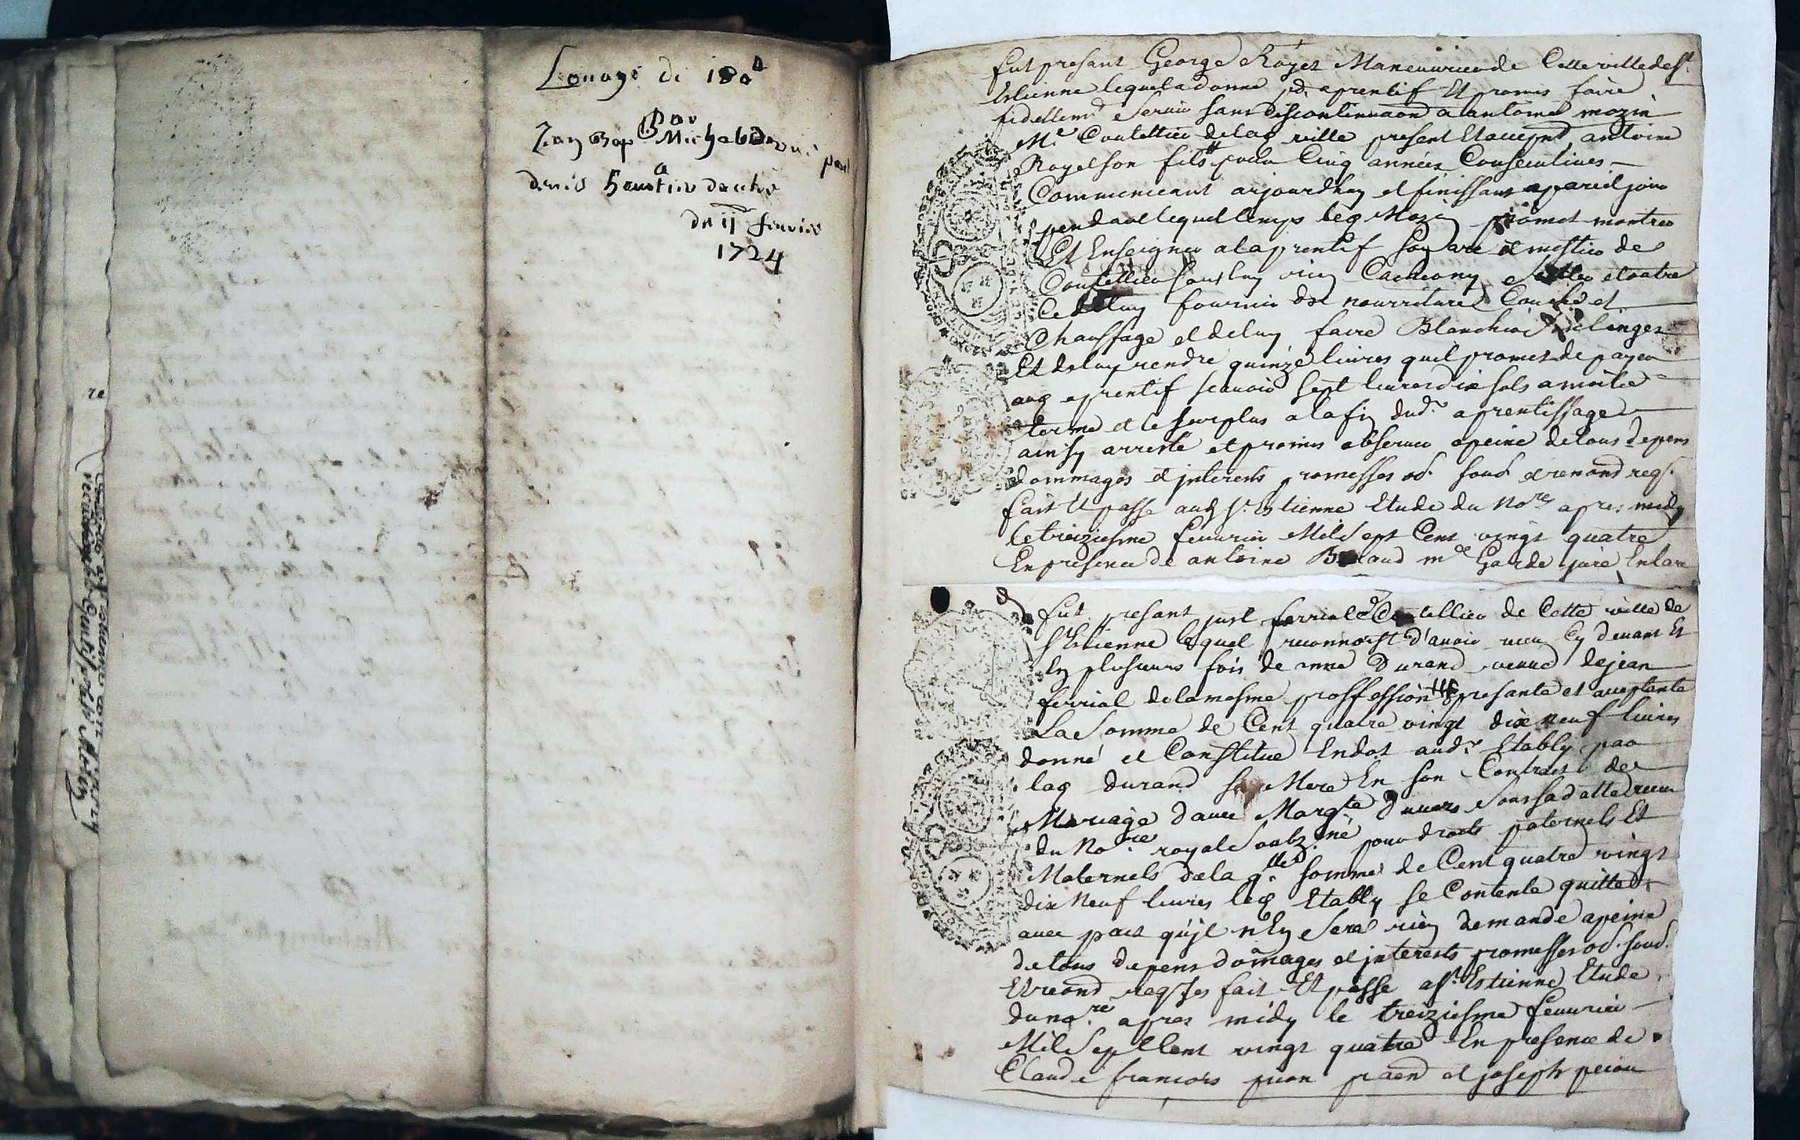 Louage de 180#
Par
Jean Bap Michel
a
denis
du 11 feurier
1724
fut presant George Royet Maneuurier de Cette ville de st
Estienne lequel a donné pr aprentif Et promis faire
fidellemt Seruir sans discontinuaon a antoine mozin
Me Coutellier de lad ville present Et acceptt antoine
Royet son fils pour Cinq années Consecutiues
Commencant aujourdhuy et finissant a pareil jour
pendant lequel temps led Mozin promet montrer
Et Enseigner a laprentif son art et mestier de
Coutellier sans luy rien Cacher ny et outre
Ce de luy fournir de nourriture Couche et
Chauffage et de luy faire Blanchir de linges
Et de luy rendre quinze liures quil promet de payer
aud aprentif scauoir sept liures dix sols a moitié
terme et le surplus a la fin dudt aprentissage
ainsy arresté et promis obseruer a peine de tous depens
dommages et jnterests promesses ob. soub. et renond reqs.
fait Et passé aud st Estienne Etude du Nore apres midy
le treiziesme feurier Mil Sept Cent vingt quatre
En presence de antoine md Garde juré En l'art
fut presant just ferriol Coutellier de Cette ville de
st Estienne lequel reconnoist d'auoir receu Cy deuant Et
En plusieurs fois de anne Durand veuue de jean
ferriol de la mesme proffession presante et acceptante
La Somme de Cent quatre vingt dix neuf liures
donné et Constitué En dot audt Etably par
lad durand sa Mere En son Contract de
Mariage d'auec Margte Sous sa datte receu
du Nore royal Soubzné pour droits paternels Et
Maternels de laqlle somme de Cent quatre vingt
dix Neuf liures led Etably se Contente quitte
auec pact qu'jl n'En Sera rien demandé a peine
de tous depens domages et jnterests promesses ob. soub.
Et reond reqses fait Et passé a st Estienne Etude
du nore apres midy le treiziesme feurier
Mil Sept Cent vingt quatre En presence de
Claude francois et joseph